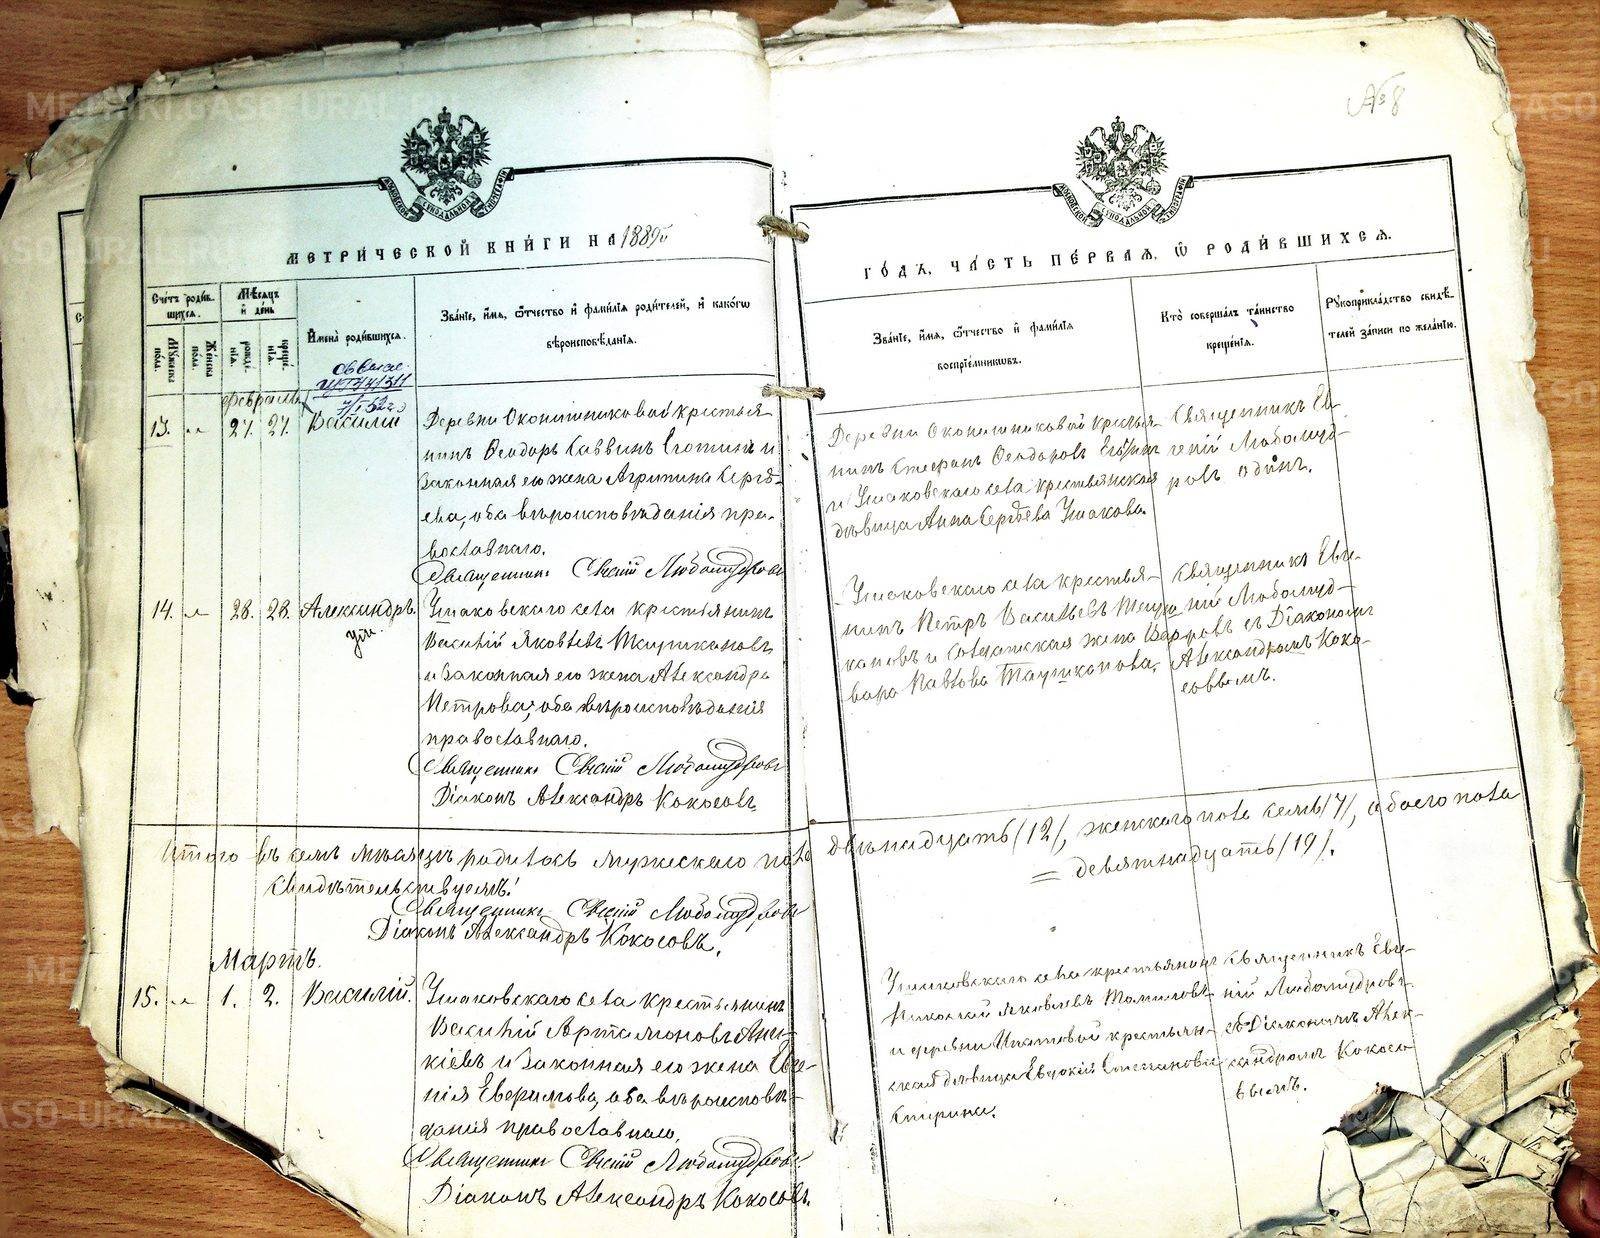 № 8
МОСКОВСКОЙ СѴНОДАЛЬНОЙ ТИПОГРАФІИ
МОСКОВСКОЙ СѴНОДАЛЬНОЙ ТИПОГРАФІИ
МЕТРИ́ЧЕСКОЙ КНИ́ГИ НА 1885
ГО́ДЪ, ЧА́СТЬ ПЕ́РВАЯ, Ѿ РОДИ́ВШИХСЯ.
Сче́тъ роди́в-
шихся.
Му́жеска
по́ла.
Же́нска
по́ла.
Мѣ́сяцъ
и де́нь
рожде́-
нія.
креще́-
нія.
Имена̀ роди́вшихся.
Зва́ніе, и́мя, ѻ́тчество и фами́лія роди́телей, и како́гѡ
вѣроисповѣ́данія.
Зва́ніе, и́мя, ѻ́тчество и фами́лія
воспріе́мниковъ.
Кто̀ соверша́лъ та́инство
креще́нія.
Рꙋкоприкла́дство свидѣ́-
телей за́писи по жела́нію.
Февраль
13. м 27. 27. Василій
Деревни Оконишниковой крестья-
нинъ Ѳеодоръ Саввинъ и
законная его жена Агрипина Сергѣ-
ева, оба вѣроисповѣданія пра-
вославнаго.
Священникъ Евгеній Любомудровъ
Деревни Оконишниковой крестья-
нинъ Стефанъ Ѳеодоровъ
и Ушаковскаго села крестьянская
дѣвица Анна Сергѣева Ушакова.
Священникъ Ев-
геній Любомуд-
ровъ одинъ.
14. м 28. 28. Александръ.
ум.
Ушаковскаго села крестьянинъ
Василій Яковлевъ Таушкановъ
и законная его жена Александра
Петрова, оба вѣроисповѣданія
православнаго.
Священникъ Евгеній Любомудровъ
Діаконъ Александръ Кокосовъ
Ушаковскаго села крестья-
нинъ Петръ Васильевъ Таушкановъ
и солдатская жена Вар-
вара Павлова Таушканова.
Священникъ Евге-
ній Любомуд-
ровъ съ Діакономъ
Александромъ Коко-
совымъ.
Итого въ семъ мѣсяцѣ родилось мужескаго пола двѣнадцать /12/, женскаго пола семь /7/, обоего пола
= девятнадцать /19/.
Свидѣтельствуемъ:
Священникъ Евгеній Любомудровъ
Діаконъ Александръ Кокосовъ.
Мартъ.
15. м 1. 2. Василій.
Ушаковскаго села крестьянинъ
Василій Артамоновъ Ани-
кіевъ и законная его жена Евге-
нія Ефримова, оба вѣроисповѣ-
данія православнаго.
Священникъ Евгеній Любомудровъ
Діаконъ Александръ Кокосовъ.
Ушаковскаго села крестьянинъ
Николай Яковлевъ Томиловъ
и деревни Ипатовой крестьян-
ская дѣвица Евдокія Степанова
Священникъ Евге-
ній Любомудровъ
съ Діакономъ Алек-
сандромъ Кокосо-
вымъ.
METRIKI.GASO-URAL.RU